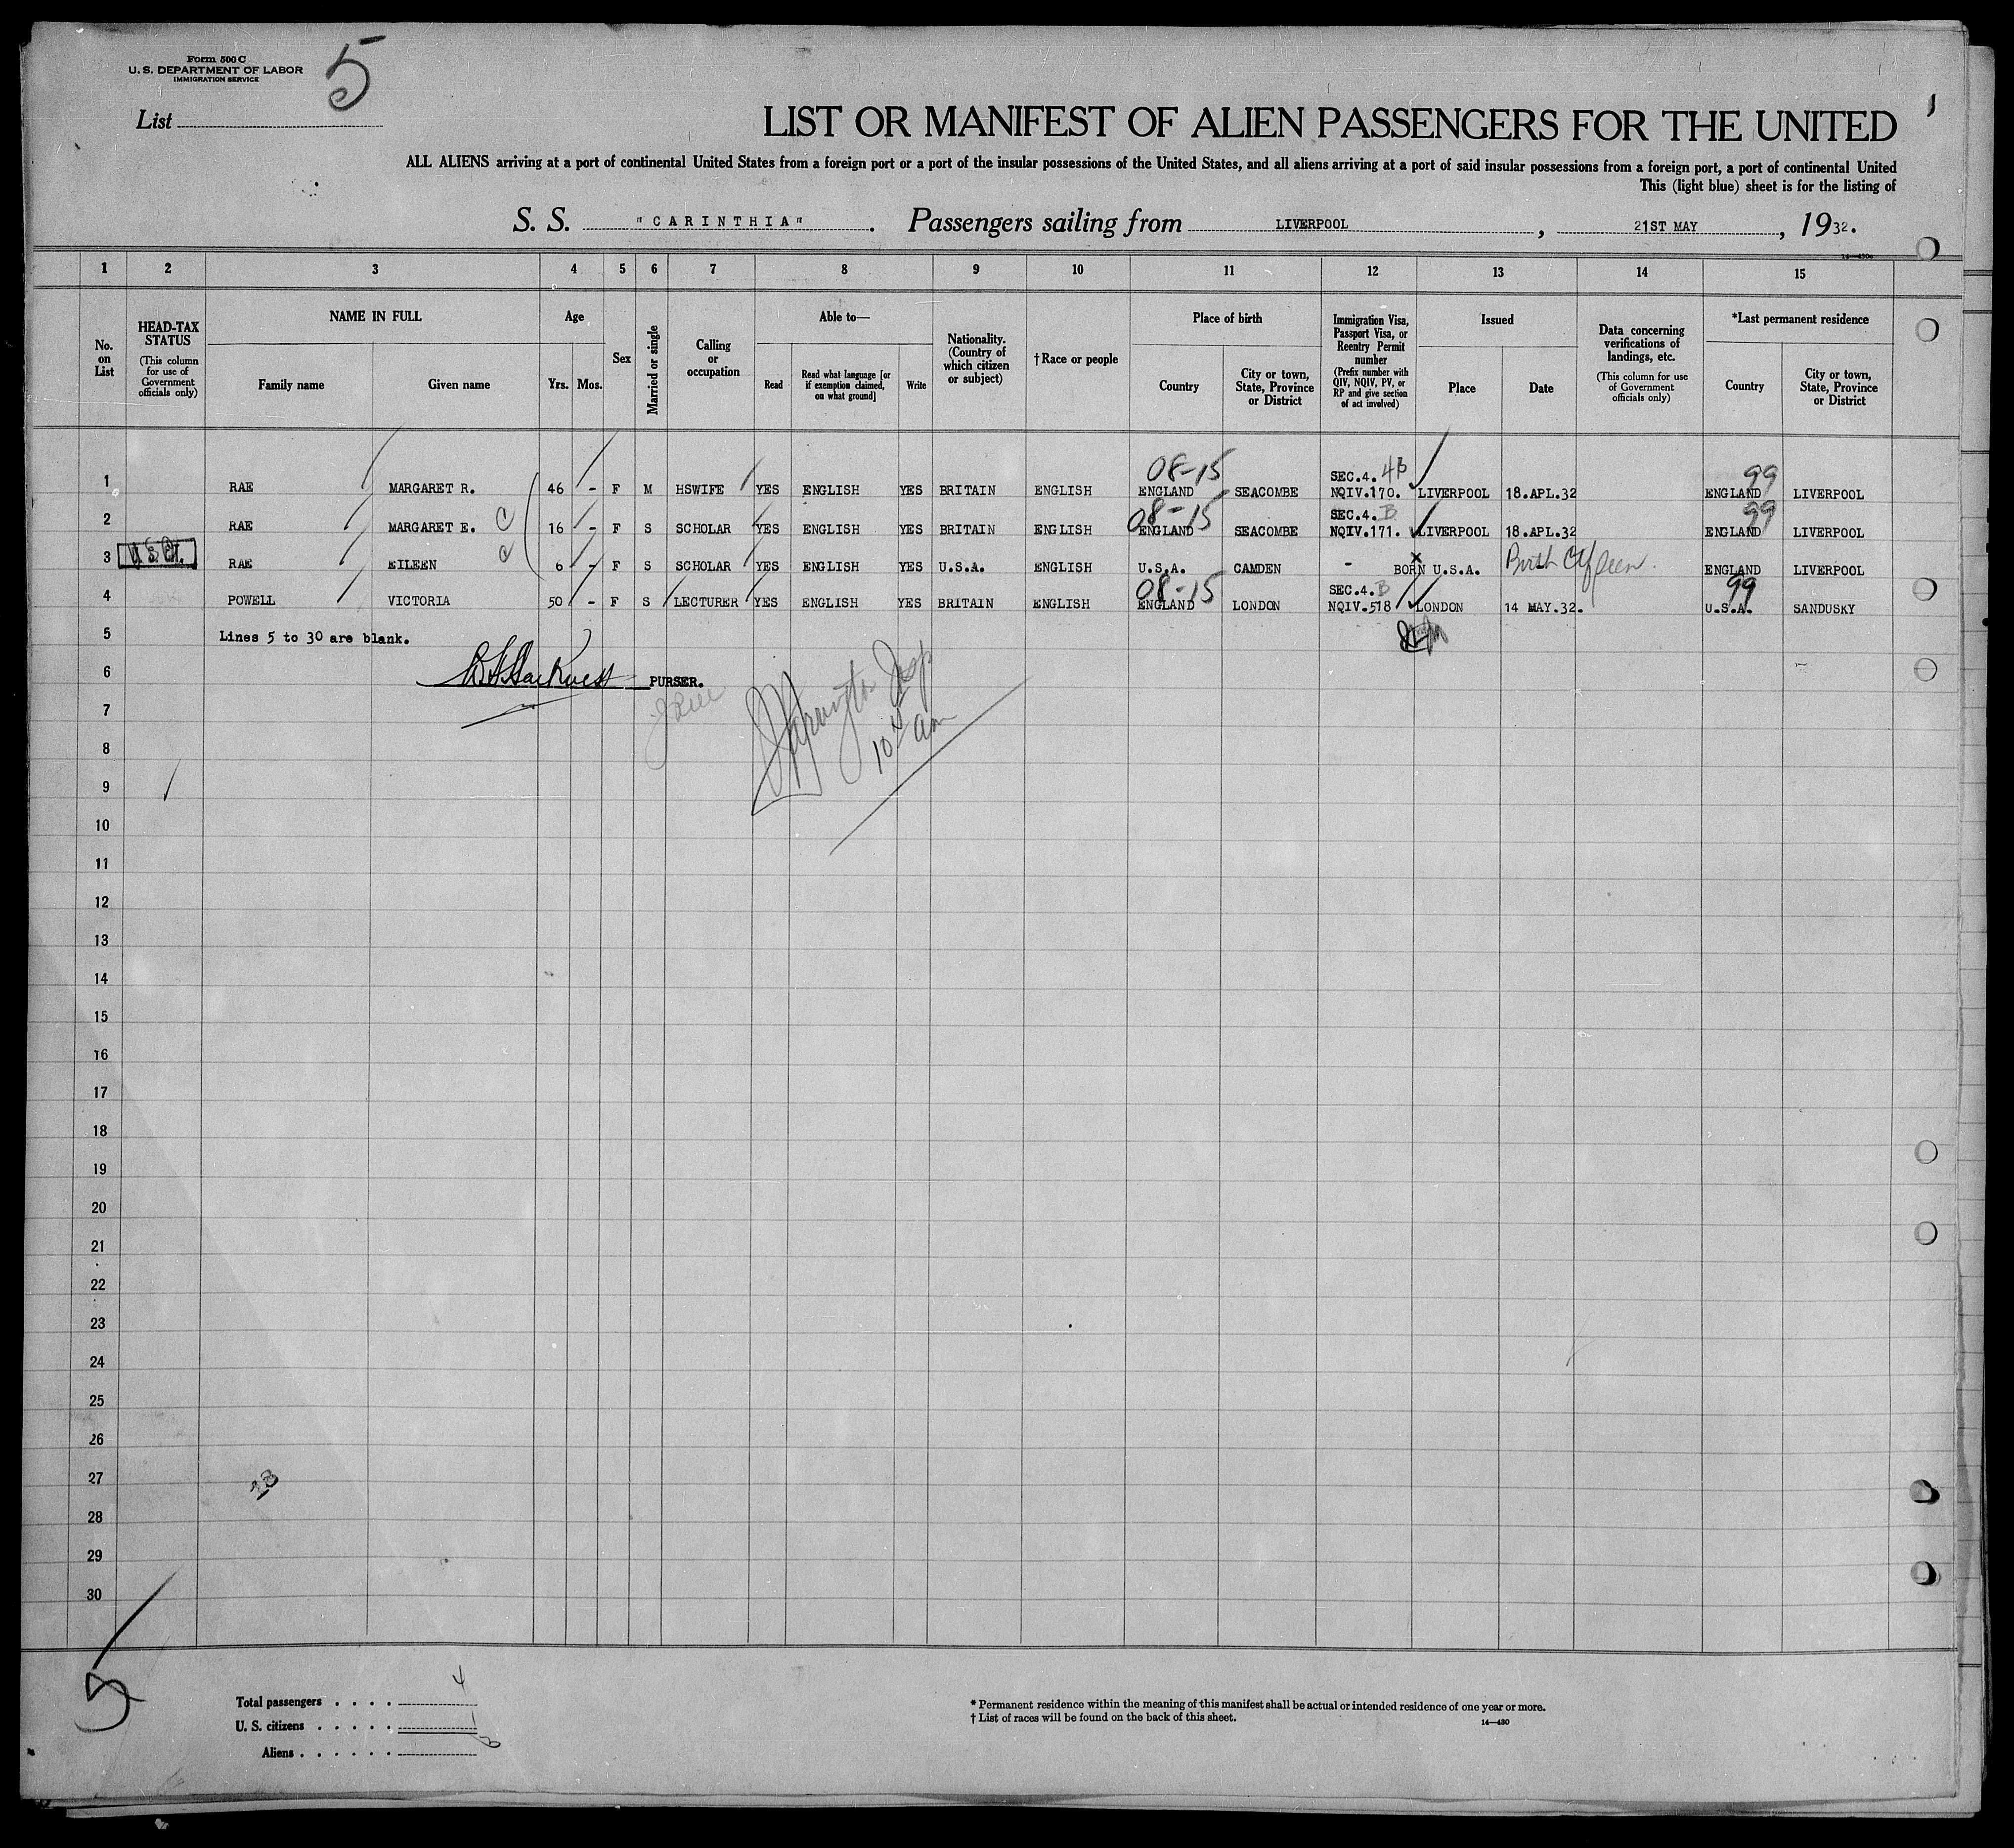 Form 500 C
U. S. DEPARTMENT OF LABOR
IMMIGRATION SERVICE
5
List
LIST OR MANIFEST OF ALIEN PASSENGERS FOR THE UNITED
ALL ALIENS arriving at a port of continental United States from a foreign port or a port of the insular possessions of the United States, and all aliens arriving at a port of said insular possessions from a foreign port, a port of continental United
This (light blue) sheet is for the listing of
S. S. "CARINTHIA". Passengers sailing from LIVERPOOL, 21ST MAY, 1932.
1 2 3 4 5 6 7 8 9 10 11 12 13 14 15
No. on List
HEAD-TAX STATUS (This column for use of Government officials only)
NAME IN FULL
Family name
Given name
Age
Yrs. Mos.
Sex
Married or single
Calling or occupation
Able to—
Read
Read what language [or if exemption claimed, on what ground]
Write
Nationality. (Country of which citizen or subject)
†Race or people
Place of birth
Country
City or town, State, Province or District
Immigration Visa, Passport Visa, or Reentry Permit number (Prefix number with QIV, NQIV, PV, or RP and give section of act involved)
Issued
Place
Date
Data concerning verifications of landings, etc. (This column for use of Government officials only)
*Last permanent residence
Country
City or town, State, Province or District
08-15 SEC.4. 4B 99
1 RAE MARGARET R. 46 - F M HSWIFE YES ENGLISH YES BRITAIN ENGLISH ENGLAND SEACOMBE NQIV.170. LIVERPOOL 18.APL.32 ENGLAND LIVERPOOL
08-15 SEC.4. B 99
2 RAE MARGARET E. 16 - F S SCHOLAR YES ENGLISH YES BRITAIN ENGLISH ENGLAND SEACOMBE NQIV.171. LIVERPOOL 18.APL.32 ENGLAND LIVERPOOL
3 RAE EILEEN 6 - F S SCHOLAR YES ENGLISH YES U.S.A. ENGLISH U.S.A. CAMDEN - BORN U.S.A. Birth Ctf seen. ENGLAND LIVERPOOL
08-15 SEC.4. B 99
4 POWELL VICTORIA 50 - F S LECTURER YES ENGLISH YES BRITAIN ENGLISH ENGLAND LONDON NQIV.518 LONDON 14 MAY.32. U.S.A. SANDUSKY
5 Lines 5 to 30 are blank.
6 PURSER.
7
8
9
10
11
12
13
14
15
16
17
18
19
20
21
22
23
24
25
26
27
28
29
30
5
Total passengers . . . . 4
U. S. citizens . . . . . 1
Aliens . . . . . . 3
* Permanent residence within the meaning of this manifest shall be actual or intended residence of one year or more.
† List of races will be found on the back of this sheet.
14—430